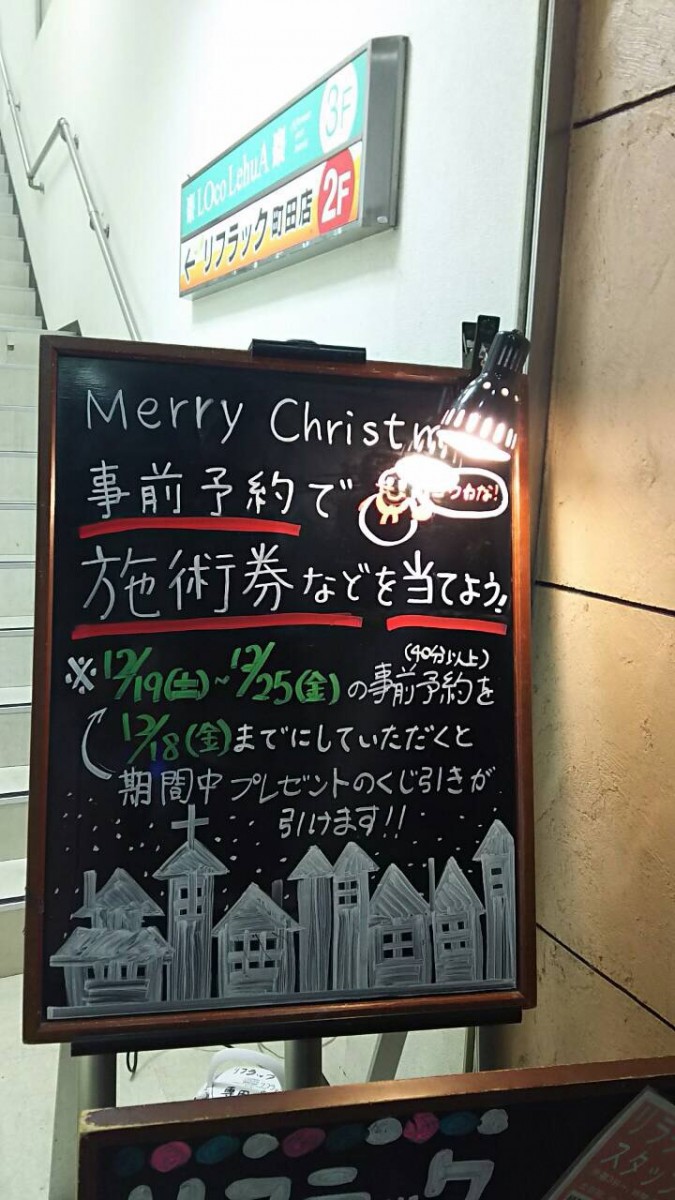 楽 LOco LehuA 楽 3F
← リフラック 町田店 2F
Merry Christm
事前予約で
うかな!
施術券などを当てよう!
(40分以上)
※12/19(土)~12/25(金)の事前予約を
12/18(金)までにしていただくと
期間中プレゼントのくじ引きが
引けます!!
リフラック
リフラック
リラ
スタッ